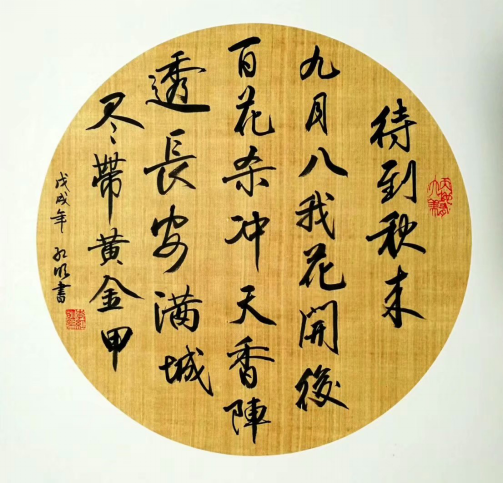 待到秋来
九月八我花開後
百花杀冲天香陣
透長安满城
尽帶黄金甲
戊戌年 明書